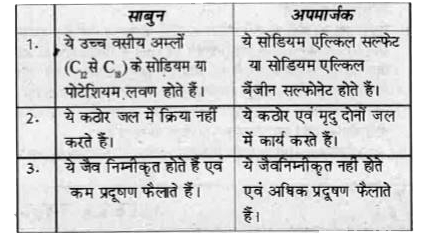 साबुन अपमार्जक
1. ये उच्च वसीय अम्लों ये सोडियम एल्किल सल्फेट
(C12 से C18) के सोडियम या या सोडियम एल्किल
पोटेशियम लवण होते हैं। बेंजीन सल्फोनेट होते हैं।
2. ये कठोर जल में क्रिया नहीं ये कठोर एवं मृदु दोनों जल
करते हैं। में कार्य करते हैं।
3. ये जैव निम्नीकृत होते हैं एवं ये जैवनिम्नीकृत नही होते
कम प्रदूषण फैलाते हैं। एवं अधिक प्रदूषण फैलाते
हैं।